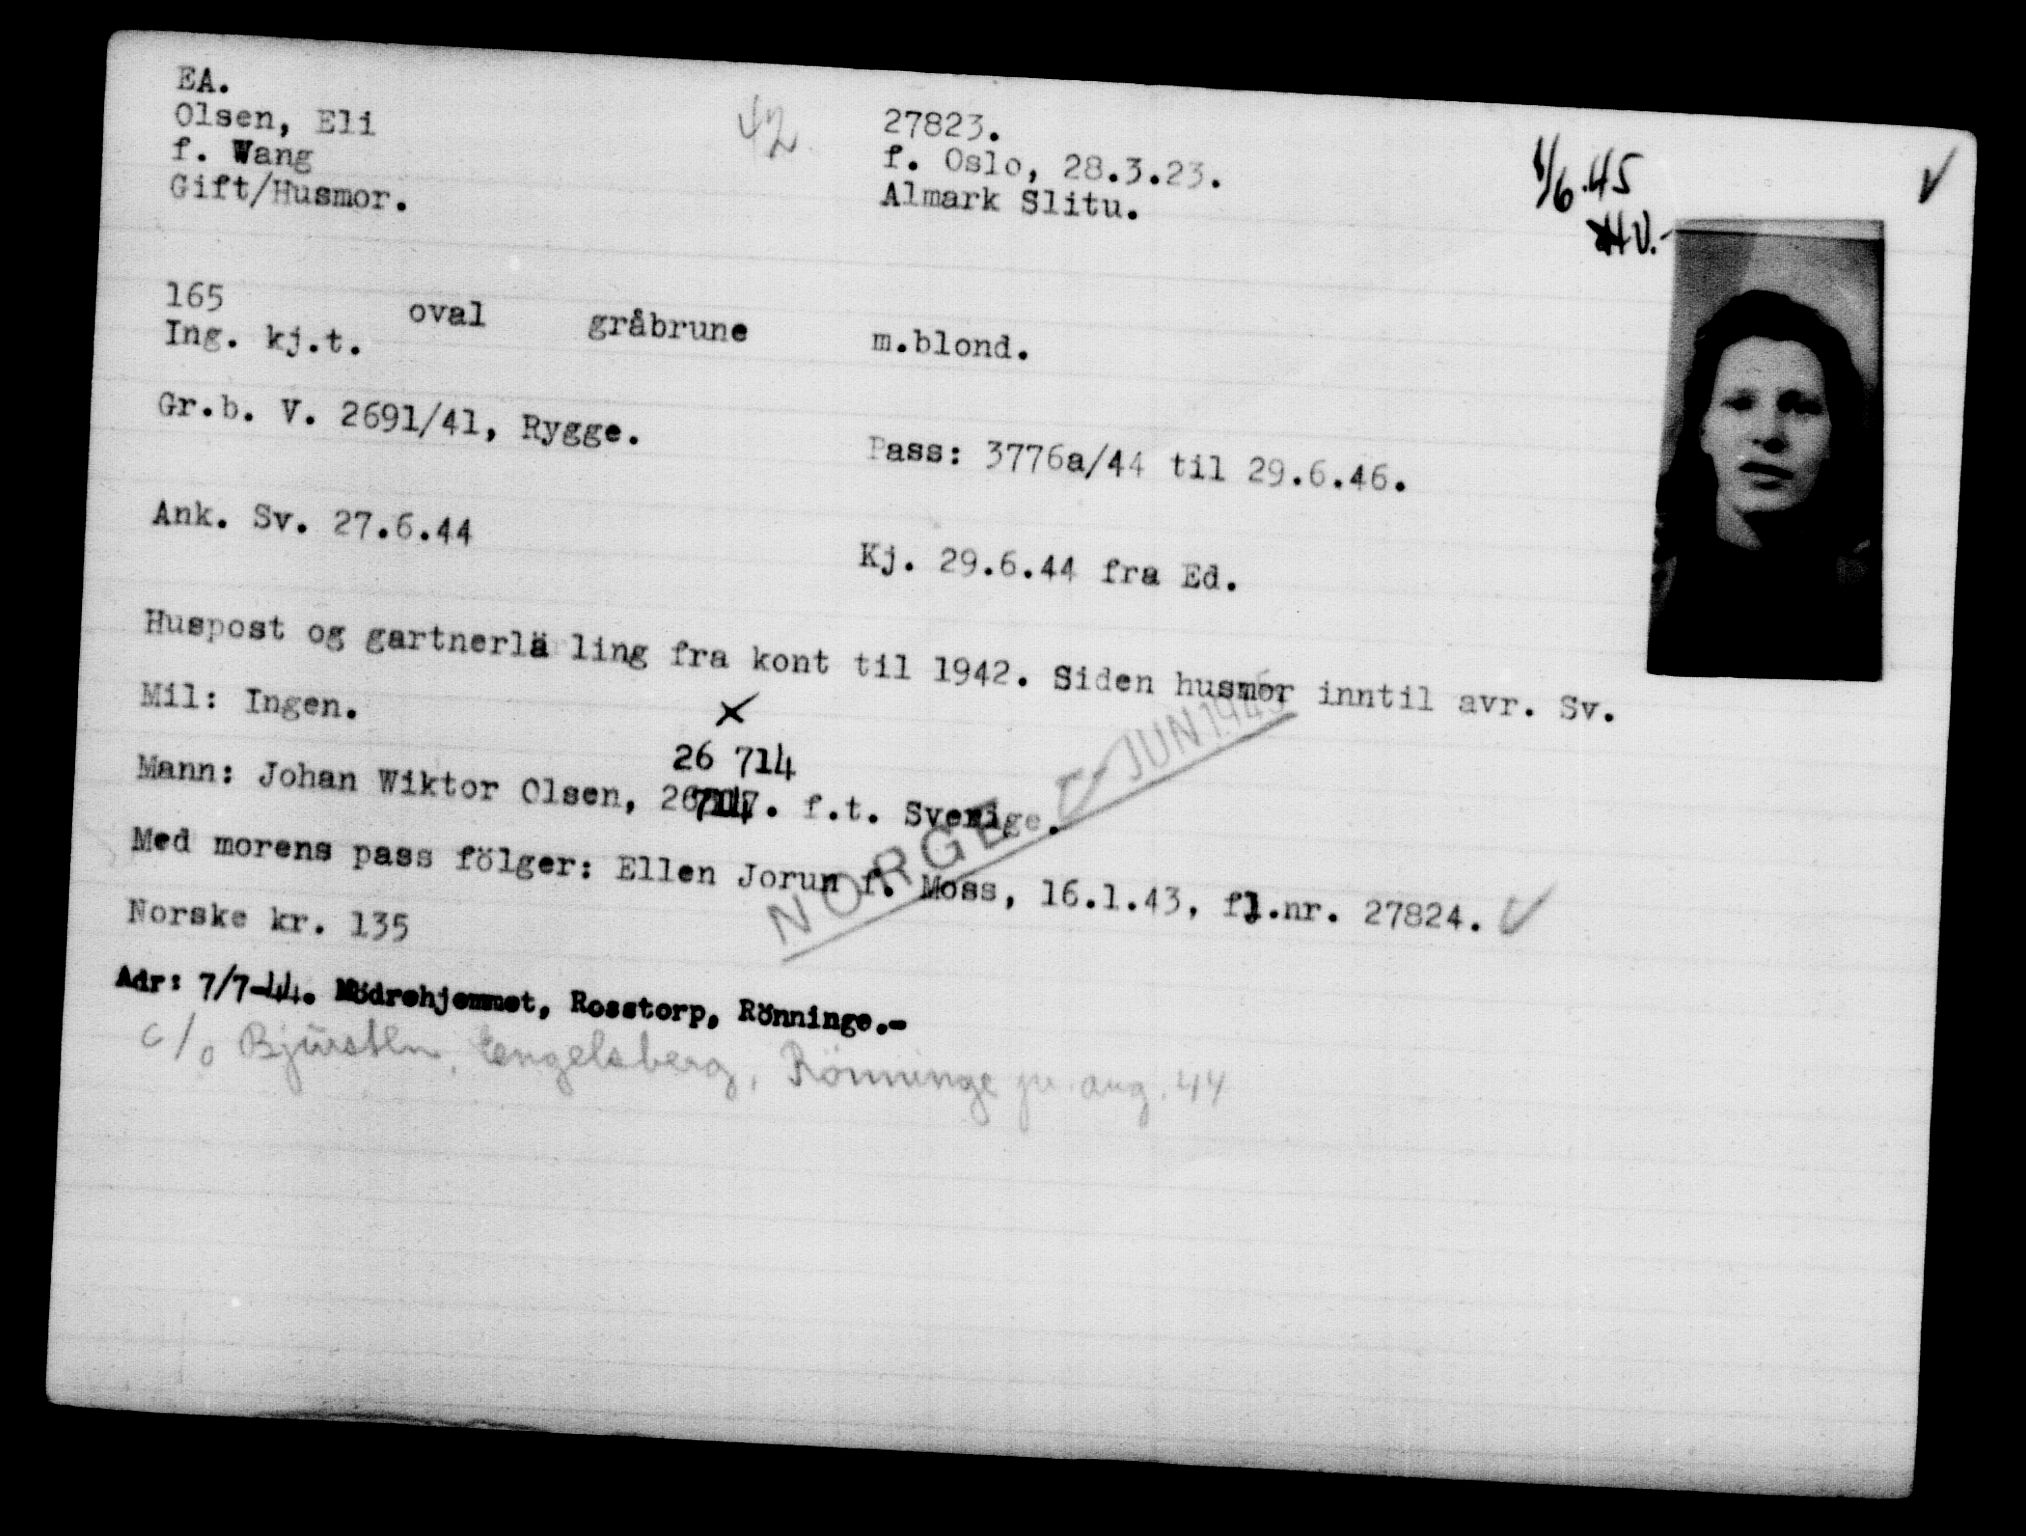 EA.
Olsen, Eli
f. Wang
Gift/Husmor.
42
27823.
f. Oslo, 28.3.23.
Almark Slitu.
1/6.45
HV.-
165 oval gråbrune m.blond.
Ing. kj.t.
Gr.b. V. 2691/41, Rygge.
Pass: 3776a/44 til 29.6.46.
Ank. Sv. 27.6.44
Kj. 29.6.44 fra Ed.
Huspost og gartnerlä ling fra kont til 1942. Siden husmor inntil avr. Sv.
Mil: Ingen.
x
26 714
Mann: Johan Wiktor Olsen, f.t. Sverige.
Med morens pass fölger: Ellen Jorun f. Moss, 16.1.43, fl.nr. 27824.
NORGE JUN 1945
Norske kr. 135
Adr: 7/7-44. Mödrehjemmet, Rosstorp, Rönninge.-
c/o Engelsberg, Rönninge aug. 44